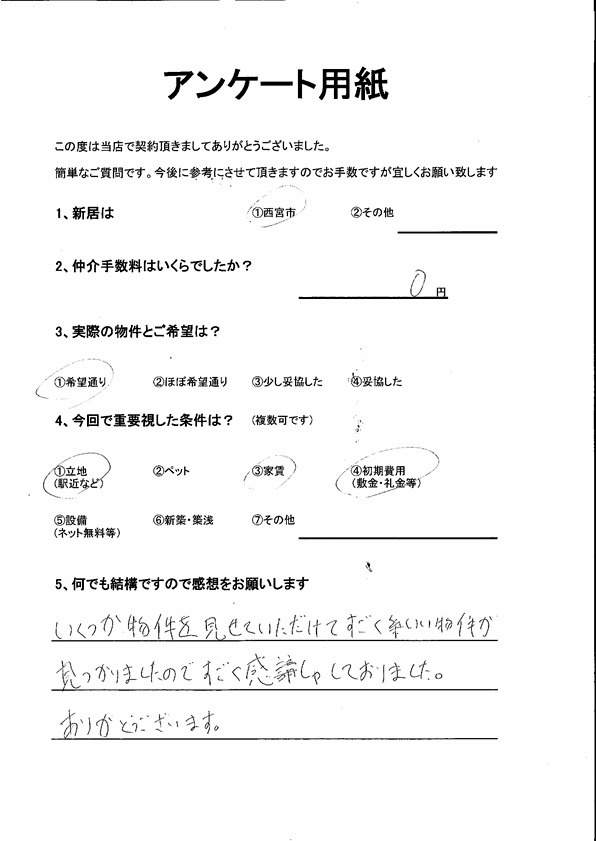 アンケート用紙
この度は当店で契約頂きましてありがとうございました。
簡単なご質問です。今後に参考にさせて頂きますのでお手数ですが宜しくお願い致します
1、新居は ①西宮市 ②その他
2、仲介手数料はいくらでしたか？
0 円
3、実際の物件とご希望は？
①希望通り ②ほぼ希望通り ③少し妥協した ④妥協した
4、今回で重要視した条件は？ (複数可です)
①立地 ②ペット ③家賃 ④初期費用
(駅近など) (敷金・礼金等)
⑤設備 ⑥新築・築浅 ⑦その他
(ネット無料等)
5、何でも結構ですので感想をお願いします
いくつか物件を見せていただけてすごくいい物件が
見つかりましたのですごく感謝しております。
ありがとうございます。